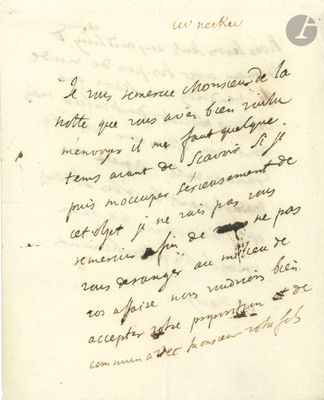 mr necker
Je vous remercie Monsieur de la
notte que vous avez bien voulu
m'envoyer il me faut quelque
tems avant de scavoir si je
puis m'occuper serieusement de
cet objet je ne vais pas vous
remercier afin de ne pas
vous deranger au milieu de
vos affaire nous voudrions bien
accepter votre proposition et de
commun avec monsieur votre fils